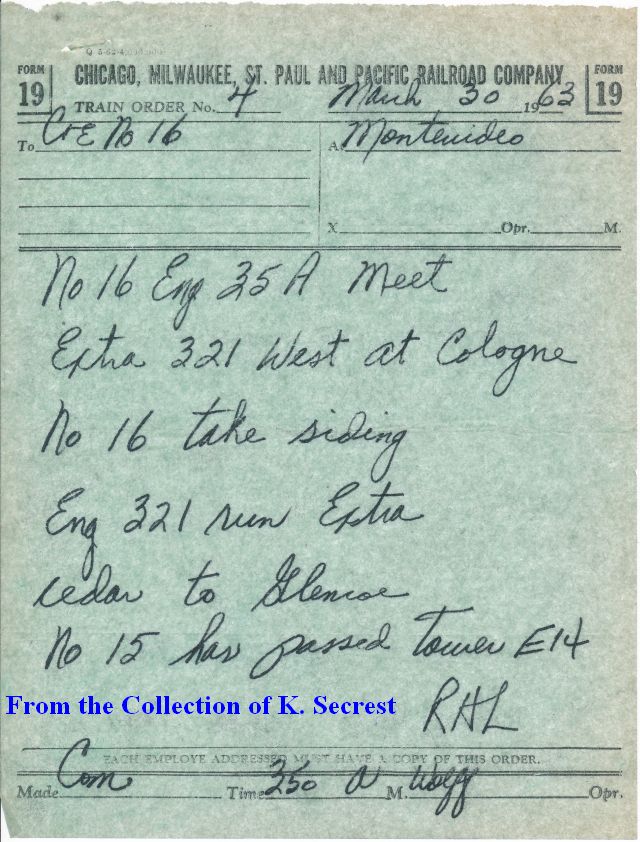 FORM 19
CHICAGO, MILWAUKEE, ST. PAUL AND PACIFIC RAILROAD COMPANY
FORM 19
TRAIN ORDER No. 4 March 30 1963
To C+E No 16 At Montevideo
X Opr. M.
No 16 Eng 35A Meet
Extra 321 West at Cologne
No 16 take siding
Eng 321 run Extra
cedar to Glencoe
No 15 has passed tower E14
From the Collection of K. Secrest
RHL
EACH EMPLOYE ADDRESSED MUST HAVE A COPY OF THIS ORDER.
Made Com Time 350 A M. Wolff Opr.